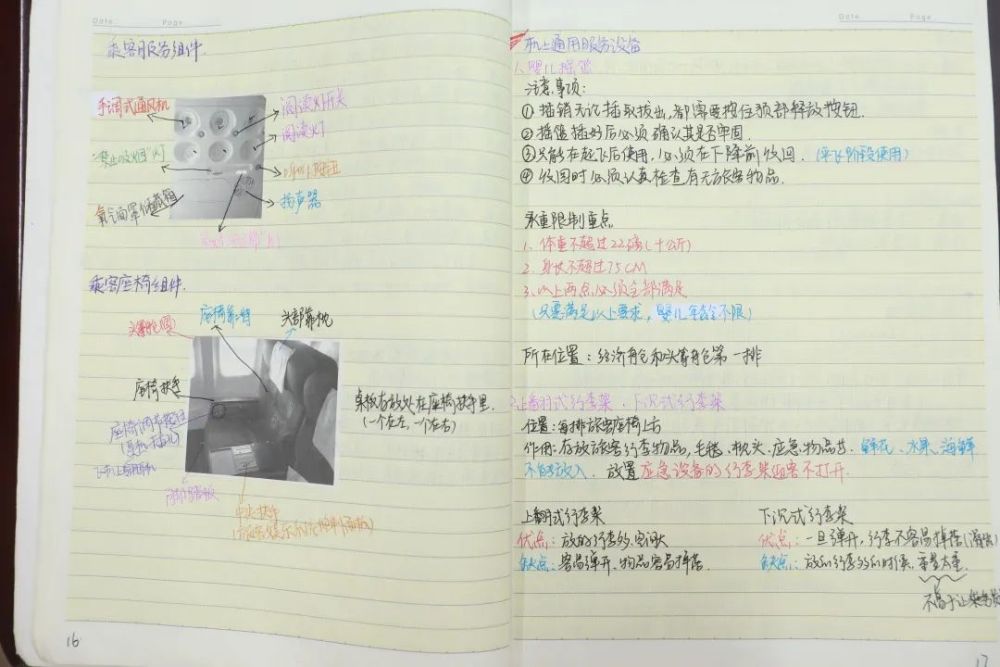 Date Page
乘客服务组件.
手调式通风机
阅读灯开关
阅读灯
"禁止吸烟"灯
呼叫按钮
扬声器
氧气面罩储藏箱
乘客座椅组件.
头等舱
座椅靠背
头部靠枕
座椅扶手
座椅调节按钮
桌板存放处在座椅扶手里.
(一个在左,一个在右)
中央扶手
16
Date Page
机上通用服务设备
1、婴儿摇篮
注意事项:
① 插销无论插取拔出,都需要按住顶部释放按钮.
② 摇篮插好后必须确认其是否牢固.
③ 只能在起飞后使用,必须在下降前收回.(平飞阶段使用)
④ 收回时必须认真检查有无旅客物品.
承重限制重点
1、体重不超过22磅(十公斤)
2、身长不超过75CM
3、以上两点必须全部满足
(只要满足以上要求,婴儿年龄不限)
所在位置:经济舱和头等舱第一排
2.上翻式行李架、下沉式行李架
位置:每排旅客座椅上方
作用:存放旅客行李物品,毛毯、枕头、应急物品等 鲜花、水果、海鲜
不能放入. 放置应急设备的行李架迎客不打开.
上翻式行李架
优点:放的行李多,空间大
缺点:容易弹开,物品容易掉落.
下沉式行李架
优点:一旦弹开,行李不容易掉落
缺点:放的行李多的时候,重量太重.
17